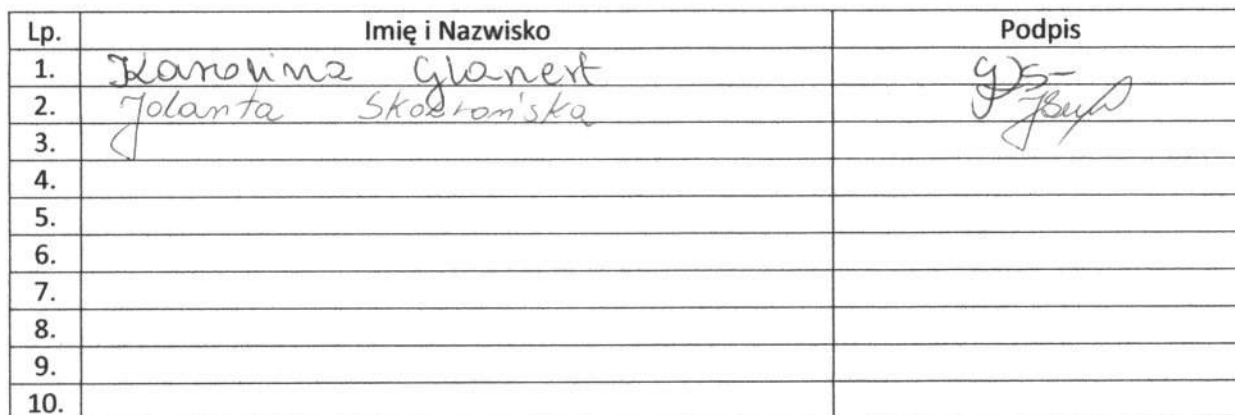 Lp. Imię i Nazwisko Podpis
1. Karolina Glanert
2. Jolanta
3.
4.
5.
6.
7.
8.
9.
10.